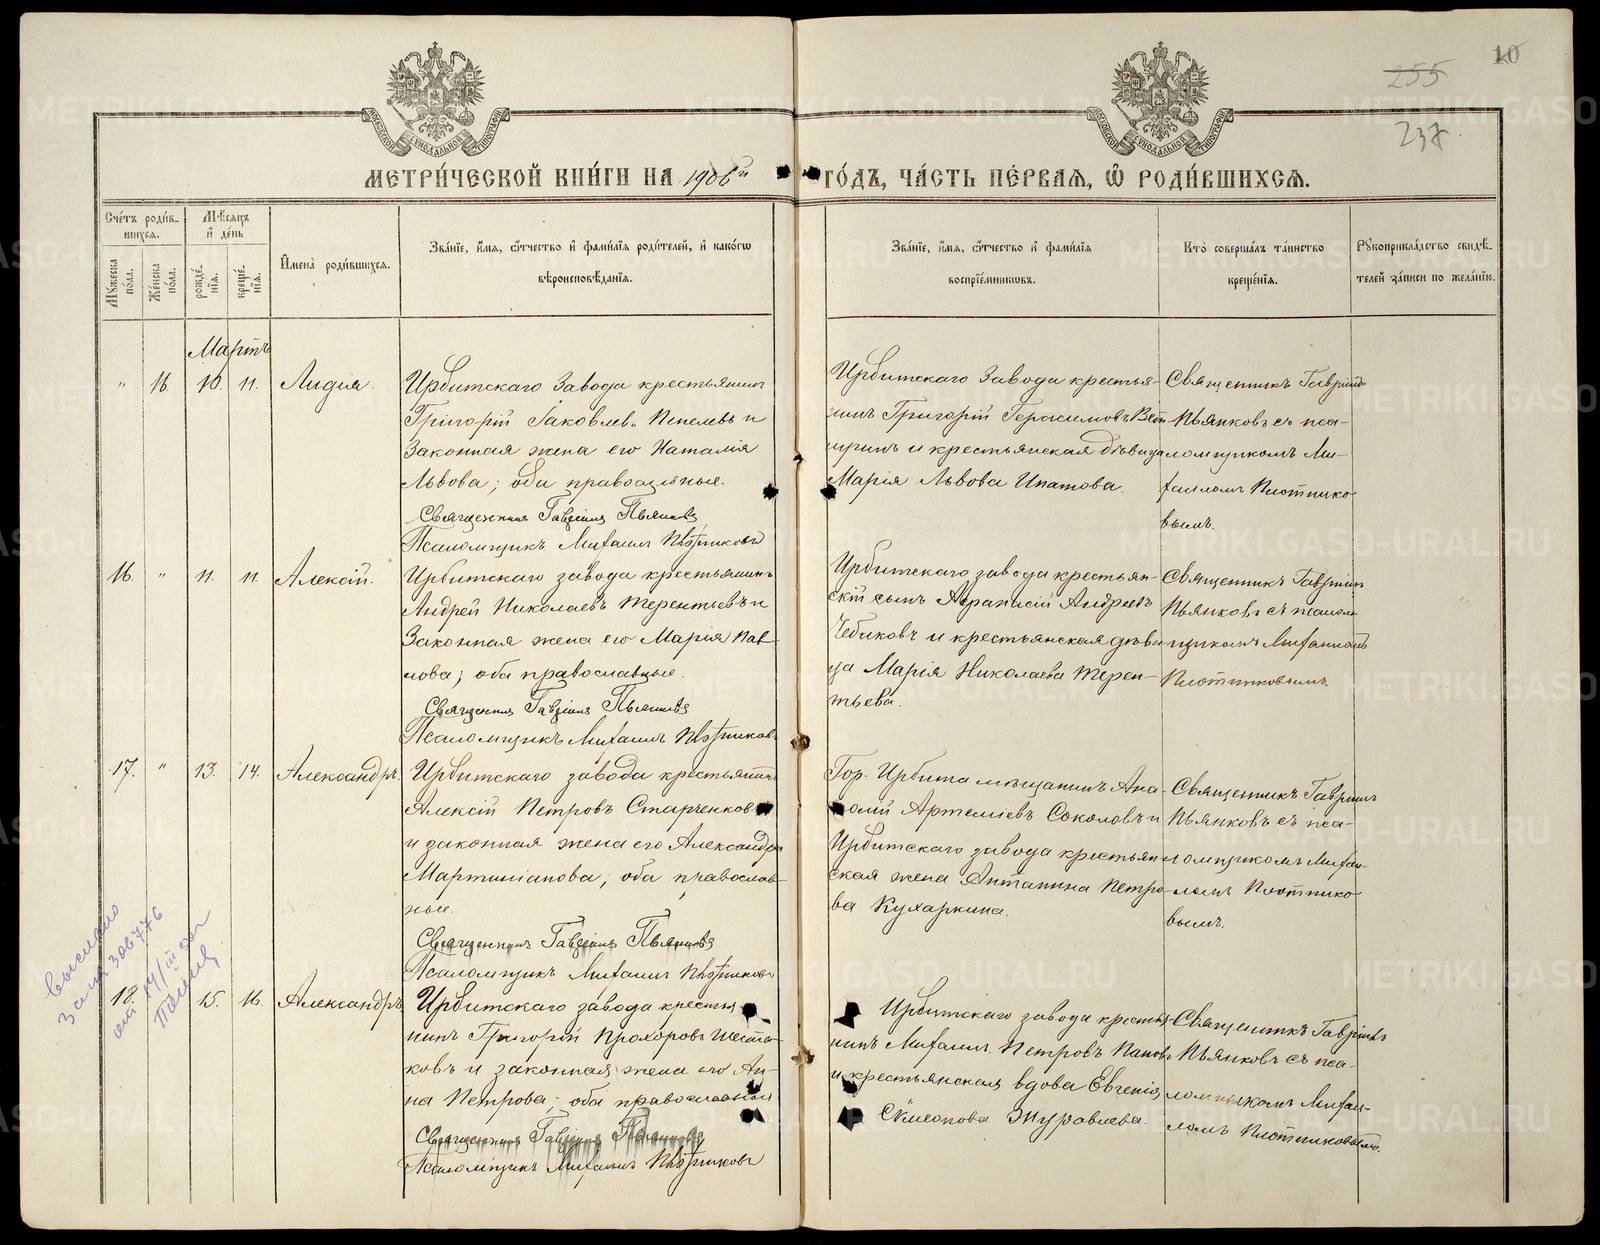 10
255
237.
МЕТРИ́ЧЕСКОЙ КНИ́ГИ НА 1906й ГО́ДЪ, ЧА́СТЬ ПЕ́РВАЯ, Ѡ҆ РОДИ́ВШИХСѦ.
Сче́тъ роди́в-
шихся.
Мѣ́сяцъ
и҆ де́нь
Мꙋ́жеска по́ла.
Же́нска по́ла.
рожде́-
нїя.
креще́-
нїя.
И҆мена̀ роди́вшихся.
Зва́нїе, и҆́мя, ѻ҆́тчество и҆ фами́лїя роди́телей, и҆ како́гѡ
вѣроисповѣ́данїя.
Зва́нїе, и҆́мя, ѻ҆́тчество и҆ фами́лїя
воспрїе́мниковъ.
Кто̀ соверша́лъ та́инство
креще́нїя.
Рꙋкоприкла́дство свидѣ́-
телей за́писи по жела́нїю.
Мартъ
" 16. 10. 11. Лидія.
Ирбитскаго Завода крестьянинъ
Григорій Іаковлевъ Пепелевъ и
Законная жена его Наталія
Львова; оба православные.
Священникъ Гавріилъ Пьянковъ
Псаломщикъ Михаилъ Плотниковъ
Ирбитскаго Завода крестья-
нинъ Григорій Герасимовъ
и крестьянская дѣвица
Марія Львова Ипатова.
Священникъ Гавріилъ
Пьянковъ съ пса-
ломщикомъ Ми-
хаиломъ Плотнико-
вымъ.
16. " 11. 11. Алексій.
Ирбитскаго завода крестьянинъ
Андрей Николаевъ Терентьевъ и
Законная жена его Марія Пав-
лова; оба православные.
Священникъ Гавріилъ Пьянковъ
Псаломщикъ Михаилъ Плотниковъ
Ирбитскаго завода крестьян-
скій сынъ Афанасій Андреевъ
Чебыковъ и крестьянская дѣви-
ца Марія Николаева Терен-
тьева.
Священникъ Гавріилъ
Пьянковъ съ псалом-
щикомъ Михаиломъ
Плотниковымъ.
17. " 13. 14. Александръ.
Ирбитскаго завода крестьянинъ
Алексій Петровъ Старченковъ
и законная жена его Александра
Мартиніанова; оба православ-
ные.
Священникъ Гавріилъ Пьянковъ
Псаломщикъ Михаилъ Плотниковъ
Гор. Ирбита мѣщанинъ Ана-
толій Артемьевъ Соколовъ и
Ирбитскаго завода крестьян-
ская жена Антонина Петро-
ва Кухаркина.
Священникъ Гавріилъ
Пьянковъ съ пса-
ломщикомъ Михаи-
ломъ Плотнико-
вымъ.
выслано
от 14/III
18. 15. 16. Александръ
Ирбитскаго завода крестья-
нинъ Григорій Прохоровъ Шеста-
ковъ и законная жена его Ан-
на Петрова; оба православные
Священникъ Гавріилъ Пьянковъ
Псаломщикъ Михаилъ Плотниковъ
Ирбитскаго завода крестья-
нинъ Михаилъ Петровъ Пановъ
и крестьянская вдова Евгенія
Сѵмеонова Журавлева.
Священникъ Гавріилъ
Пьянковъ съ пса-
ломщикомъ Михаи-
ломъ Плотниковымъ.
METRIKI.GASO-URAL.RU